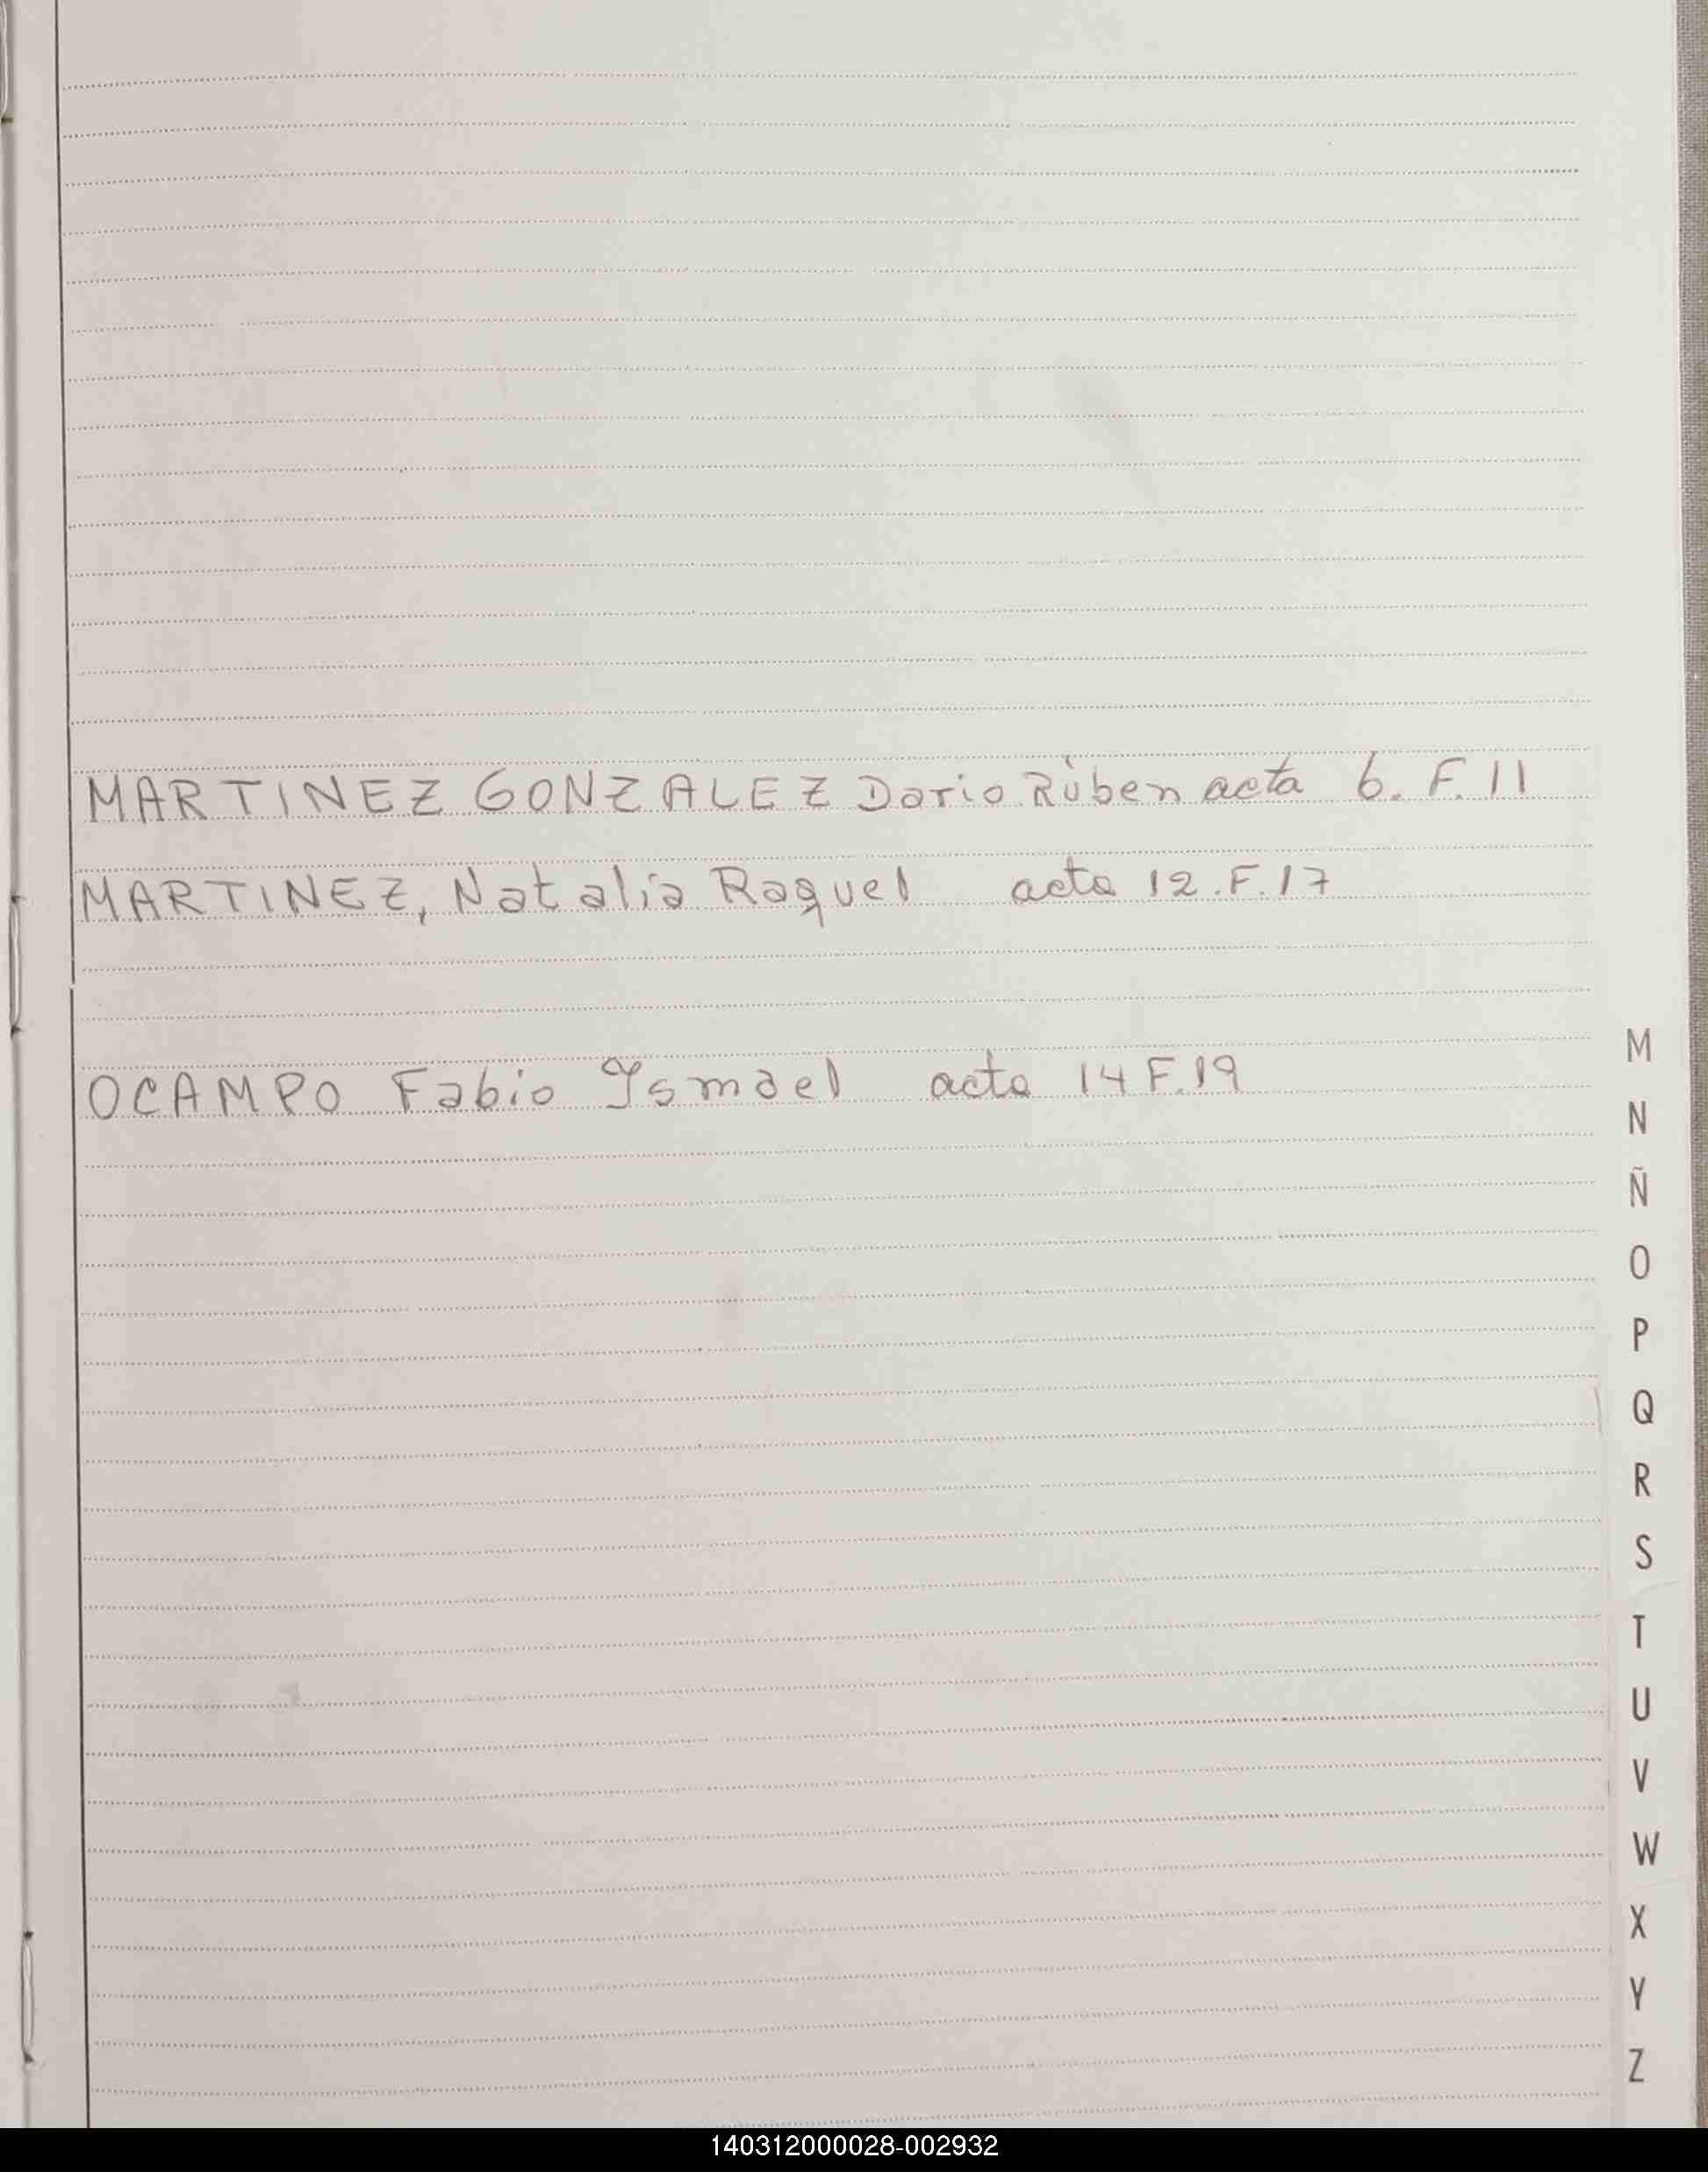 MARTINEZ GONZALEZ Dario Rúben acta 6. F. 11
MARTINEZ, Natalia Raquel acta 12. F. 17
OCAMPO Fabio Ismael acta 14 F. 19
M
N
Ñ
O
P
Q
R
S
T
U
V
W
X
Y
Z
140312000028-002932